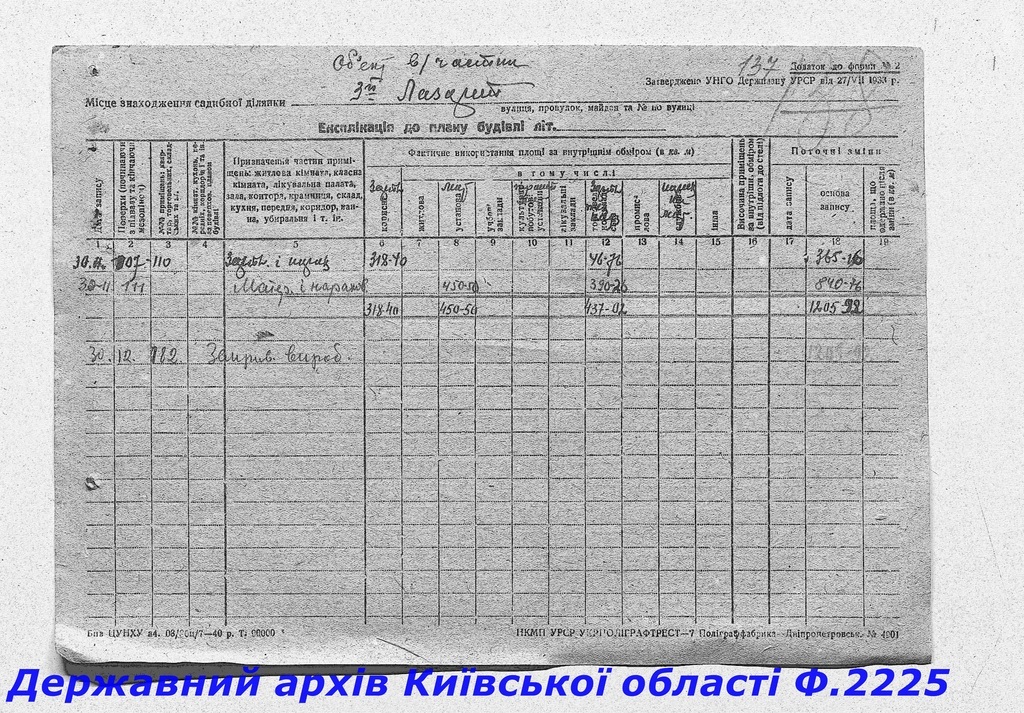 Об'єкт в/частин
137 Додаток до форми № 2
Затверджено УНГО Держплану УРСР від 27/VII 1933 р.
3й Лазарет
Місце знаходження садибної ділянки
вулиця, провулок, майдан та № по вулиці
Експлікація до плану будівлі літ.
Дата запису
Поверхи (починаючи з підвалу та кінчаючи мезоніном)
Призначення частин приміщень: житлова кімната, класна кімната, лікувальна палата, зала, контора, крамниця, склад, кухня, передня, коридор, ванна, убиральня і т. ін.
Фактичне використання площі за внутрішнім обміром (в кв. м)
в тому числі
корисна
житлова
установи
учбові заклади
лікувальні заклади
промислова
інша
Височина приміщень за внутрішн. обміром (від підлоги до стелі)
Поточні зміни
дата запису
основа запису
площа, що одержано після зміни (в кв. м)
1 2 3 4 5 6 7 8 9 10 11 12 13 14 15 16 17 18 19
30.11 107-110 318-40 46-76 365-16
30-11 111 450-50 390-26 840-76
318-40 450-50 437-02 1205-92
30. 12. 112. 1205-92
Бпв ЦУНХУ в4. 7—40 р. Т. 90000
НКМП УРСР УКРПОЛІГРАФТРЕСТ—7 Поліграффабрика—Дніпропетровськ. № 4901
Державний архів Київської області Ф.2225